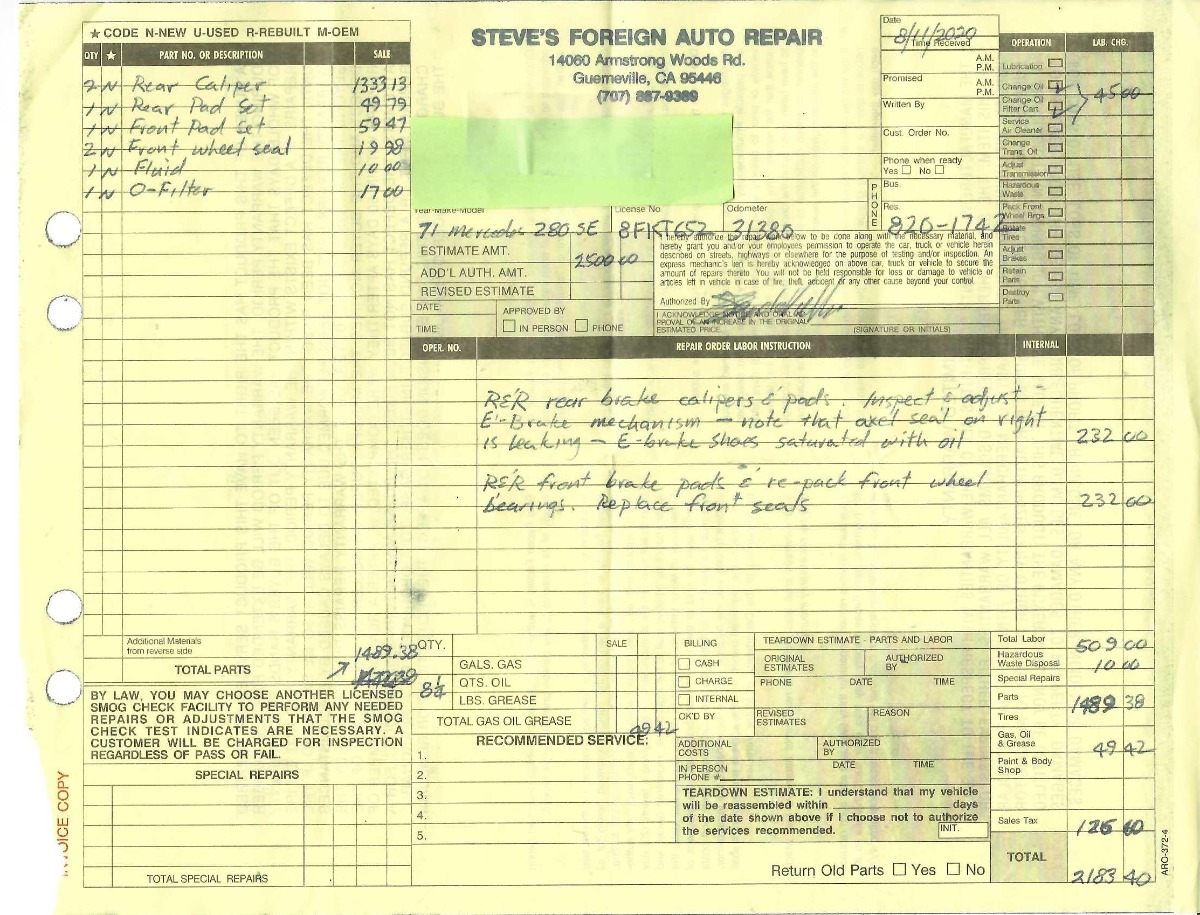 ★ CODE N-NEW U-USED R-REBUILT M-OEM
QTY ★ PART NO. OR DESCRIPTION SALE
2 N Rear Caliper 1333 13
1 N Rear Pad Set 49 79
1 N Front Pad Set 59 47
2 N Front wheel seal 19 98
1 N Fluid 10 00
1 N O-Filter 17 00
STEVE'S FOREIGN AUTO REPAIR
14060 Armstrong Woods Rd.
Guerneville, CA 95446
(707) 887-9389
Date 8/11/2020
Time Received
A.M.
P.M.
Promised
A.M.
P.M.
Written By
Cust. Order No.
Phone when ready
Yes No
PHONE
Bus.
Res. 820-1742
OPERATION LAB. CHG.
Lubrication
Change Oil
Change Oil
Filter Cart. 45 00
Service
Air Cleaner
Change
Trans. Oil
Adjust
Transmission
Hazardous
Waste
Pack Front
Wheel Brgs.
Rotate
Tires
Adjust
Brakes
Retain
Parts
Destroy
Parts
Year-Make-Model License No Odometer
71 Mercedes 280 SE 8FKT652 31380
ESTIMATE AMT. 2500 00
ADD'L AUTH. AMT.
REVISED ESTIMATE
DATE
TIME
APPROVED BY
IN PERSON PHONE
hereby authorize the repair work below to be done along with the necessary material, and
hereby grant you and/or your employees permission to operate the car, truck or vehicle herein
described on streets, highways or elsewhere for the purpose of testing and/or inspection. An
express mechanic's lien is hereby acknowledged on above car, truck or vehicle to secure the
amount of repairs thereto. You will not be held responsible for loss or damage to vehicle or
articles left in vehicle in case of fire, theft, accident or any other cause beyond your control.
Authorized By
I ACKNOWLEDGE NOTICE AND ORAL AP-
PROVAL OF AN INCREASE IN THE ORIGINAL
ESTIMATED PRICE.
(SIGNATURE OR INITIALS)
OPER. NO. REPAIR ORDER LABOR INSTRUCTION INTERNAL
R&R rear brake calipers & pads. Inspect & adjust
E-Brake mechanism - note that axel seal on right
is leaking - E-brake shoes saturated with oil 232 00
R&R front brake pads & re-pack front wheel
bearings. Replace front seals 232 00
Additional Materials
from reverse side
TOTAL PARTS 1489.38
BY LAW, YOU MAY CHOOSE ANOTHER LICENSED
SMOG CHECK FACILITY TO PERFORM ANY NEEDED
REPAIRS OR ADJUSTMENTS THAT THE SMOG
CHECK TEST INDICATES ARE NECESSARY. A
CUSTOMER WILL BE CHARGED FOR INSPECTION
REGARDLESS OF PASS OR FAIL.
SPECIAL REPAIRS
TOTAL SPECIAL REPAIRS
INVOICE COPY
QTY. SALE
GALS. GAS
QTS. OIL
LBS. GREASE
TOTAL GAS OIL GREASE 49 42
RECOMMENDED SERVICE:
1.
2.
3.
4.
5.
BILLING
CASH
CHARGE
INTERNAL
OK'D BY
TEARDOWN ESTIMATE - PARTS AND LABOR
ORIGINAL
ESTIMATES
AUTHORIZED
BY
PHONE DATE TIME
REVISED
ESTIMATES
REASON
ADDITIONAL
COSTS
AUTHORIZED
BY
IN PERSON
PHONE #
DATE TIME
TEARDOWN ESTIMATE: I understand that my vehicle
will be reassembled within days
of the date shown above if I choose not to authorize
the services recommended.
INIT.
Return Old Parts Yes No
Total Labor 509 00
Hazardous
Waste Disposal 10 00
Special Repairs
Parts 1489 38
Tires
Gas, Oil
& Grease 49 42
Paint & Body
Shop
Sales Tax
TOTAL 2183 40
ARO-372-4